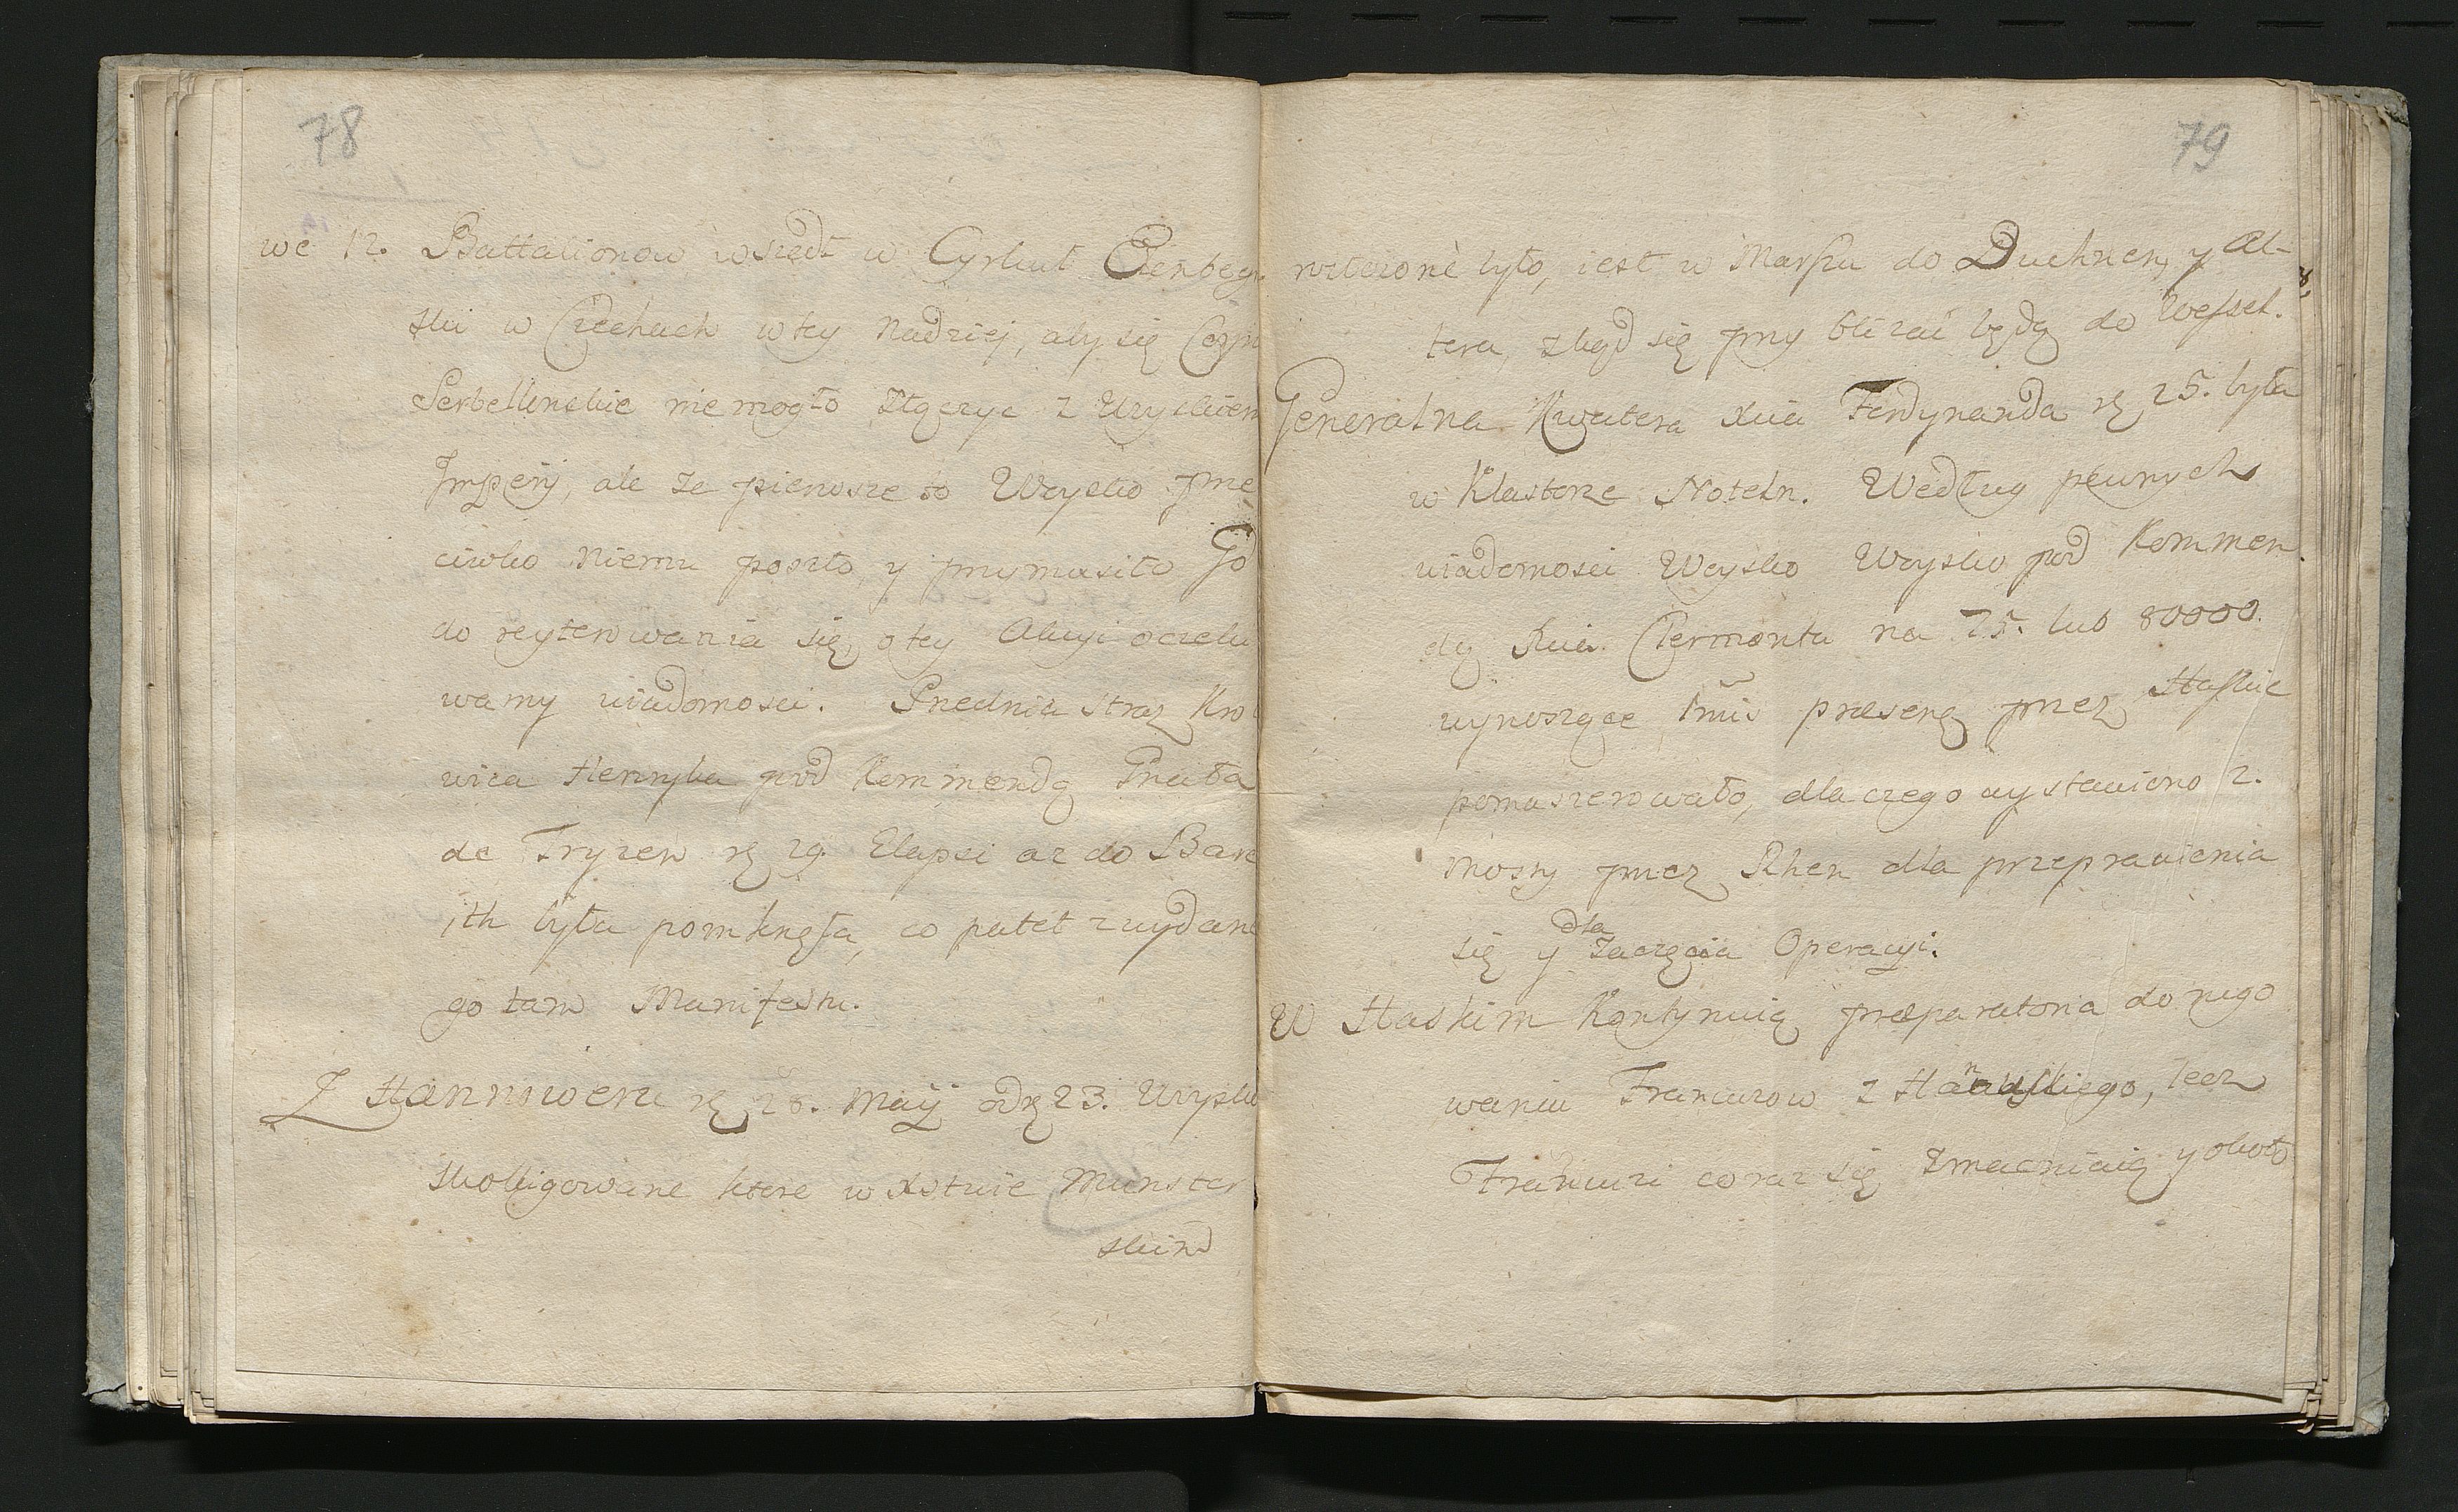 78
we 12. Battalionow wszedł w Cyrkuł Elenbog
ski w Czechach w tey nadziej, aby się Corp
Serbellonskie nie mogło złączyc z Woyskiem
Imperij, ale ze pierwsze to Woysko prze
ciwko niemu poszło y przymusiło Go
do reyterowania się, o tey Akcyi oczeku
wamy wiadomosci. Przednia straz Kro
wica Henryka pod Kommendą Grała
de Tryzen rę 29. Elapsi az do Bare
ith była pomknęła, co patet z wydane
go tam Manifestu.
Z Hannoweru rę 28. Maij odrę 23. Woysko
skolligowane ktore w Xstwie Munster
skim
79
rozłozone było, iest w Marszu do Duchnen, y Al-
tera, zkąd się przy blizac będą do Wessel.
Generalna Kwatera Xcia Ferdynanda rę 25. była
w Klastorze Noteln. Według pewnych
wiadomosci Woysko Woysko pod Kommen
dą Xcia Clermonta na 75. lub 80000.
wynoszące 1mis præsenę przez Haskie
pomaszerowało, dla czego wystawiono 2.
mosty przez Rhen dla przeprawienia
się y dla zaczęcia Operacyi.
W Haskim kontynuią præparatoria do rugo
waniu Francuzow z Hanauskiego, lecz
Francuzi coraz się zmacniaią y około